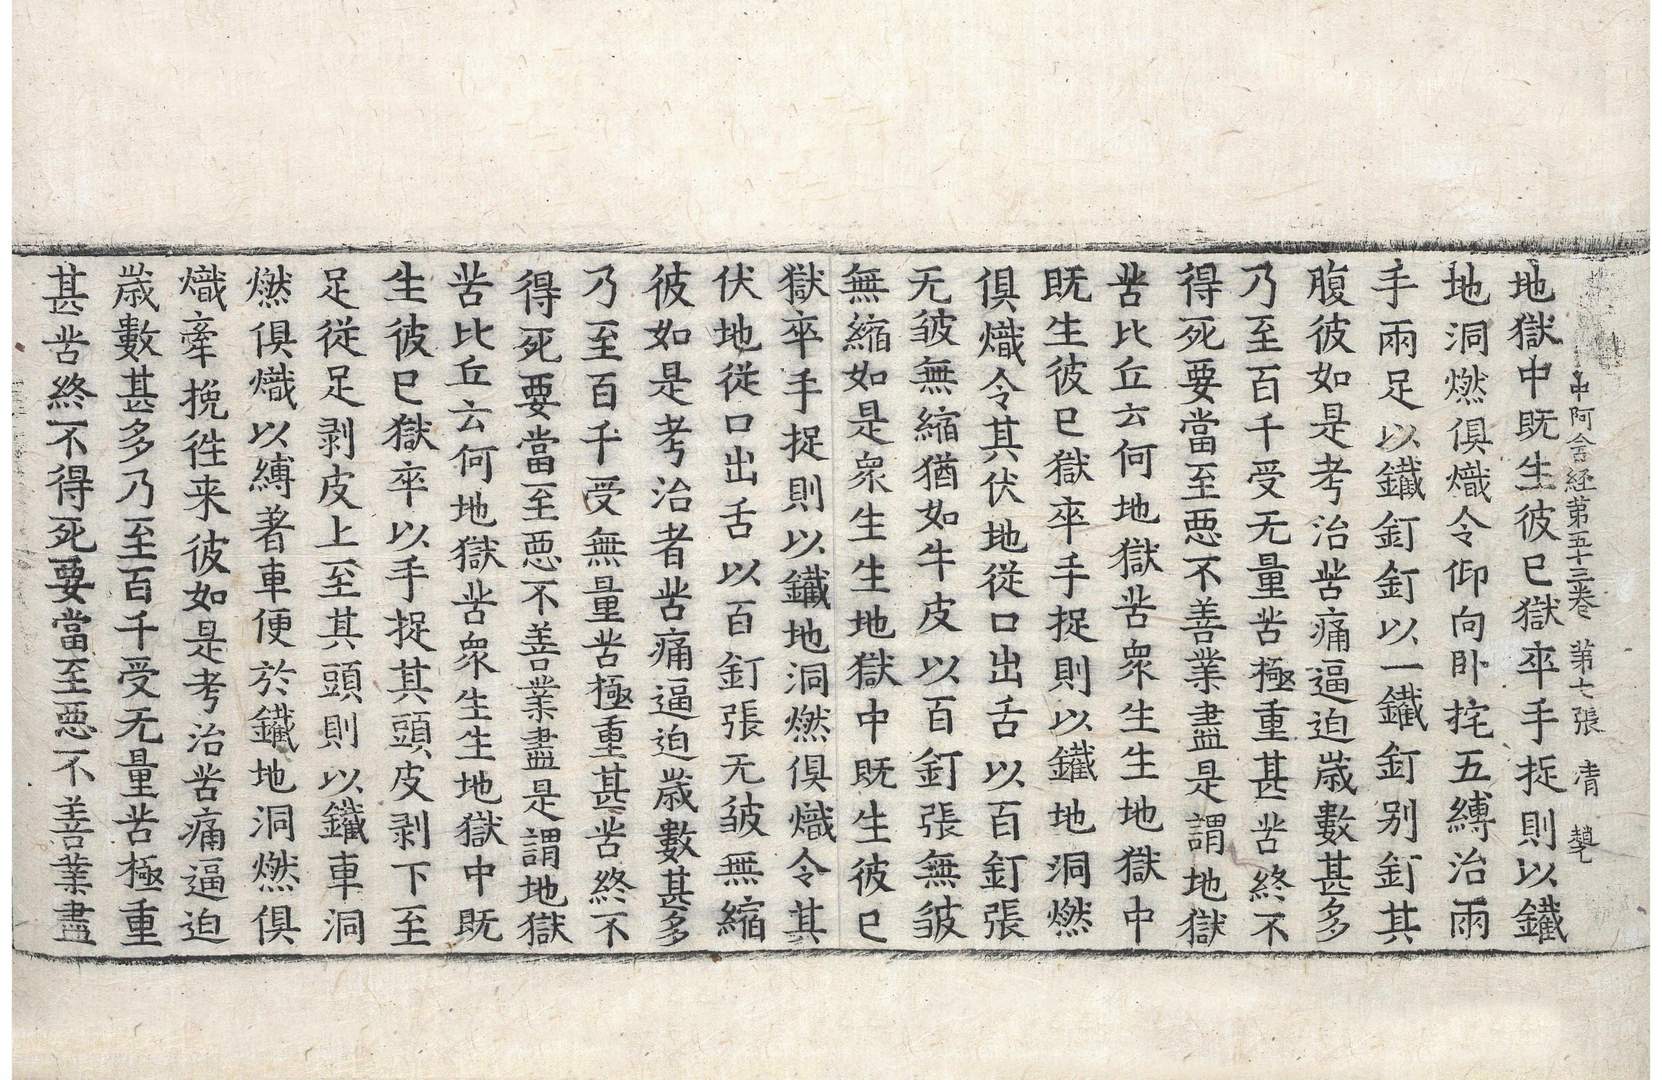 中阿含経第五十三卷 第七張 清
地獄中既生彼已獄卒手捉則以鐵
地洞燃俱熾令仰向卧挓五縛治兩
手兩足以鐵釘釘以一鐵釘别釘其
腹彼如是考治苦痛逼迫歲數甚多
乃至百千受无量苦極重甚苦終不
得死要當至悪不善業盡是謂地獄
苦比丘云何地獄苦衆生生地獄中
既生彼已獄卒手捉則以鐵地洞燃
俱熾令其伏地從口出舌以百釘張
无皱無縮猶如牛皮以百釘張無皱
無縮如是衆生生地獄中既生彼已
獄卒手捉則以鐵地洞燃俱熾令其
伏地從口出舌以百釘張无皱無縮
彼如是考治者苦痛逼迫歲數甚多
乃至百千受無量苦極重甚苦終不
得死要當至悪不善業盡是謂地獄
苦比丘云何地獄苦衆生生地獄中既
生彼已獄卒以手捉其頭皮剥下至
足從足剥皮上至其頭則以鐵車洞
燃俱熾以縛著車便於鐵地洞燃俱
熾牽挽徃来彼如是考治苦痛逼迫
歲數甚多乃至百千受无量苦極重
甚苦終不得死要當至悪不善業盡